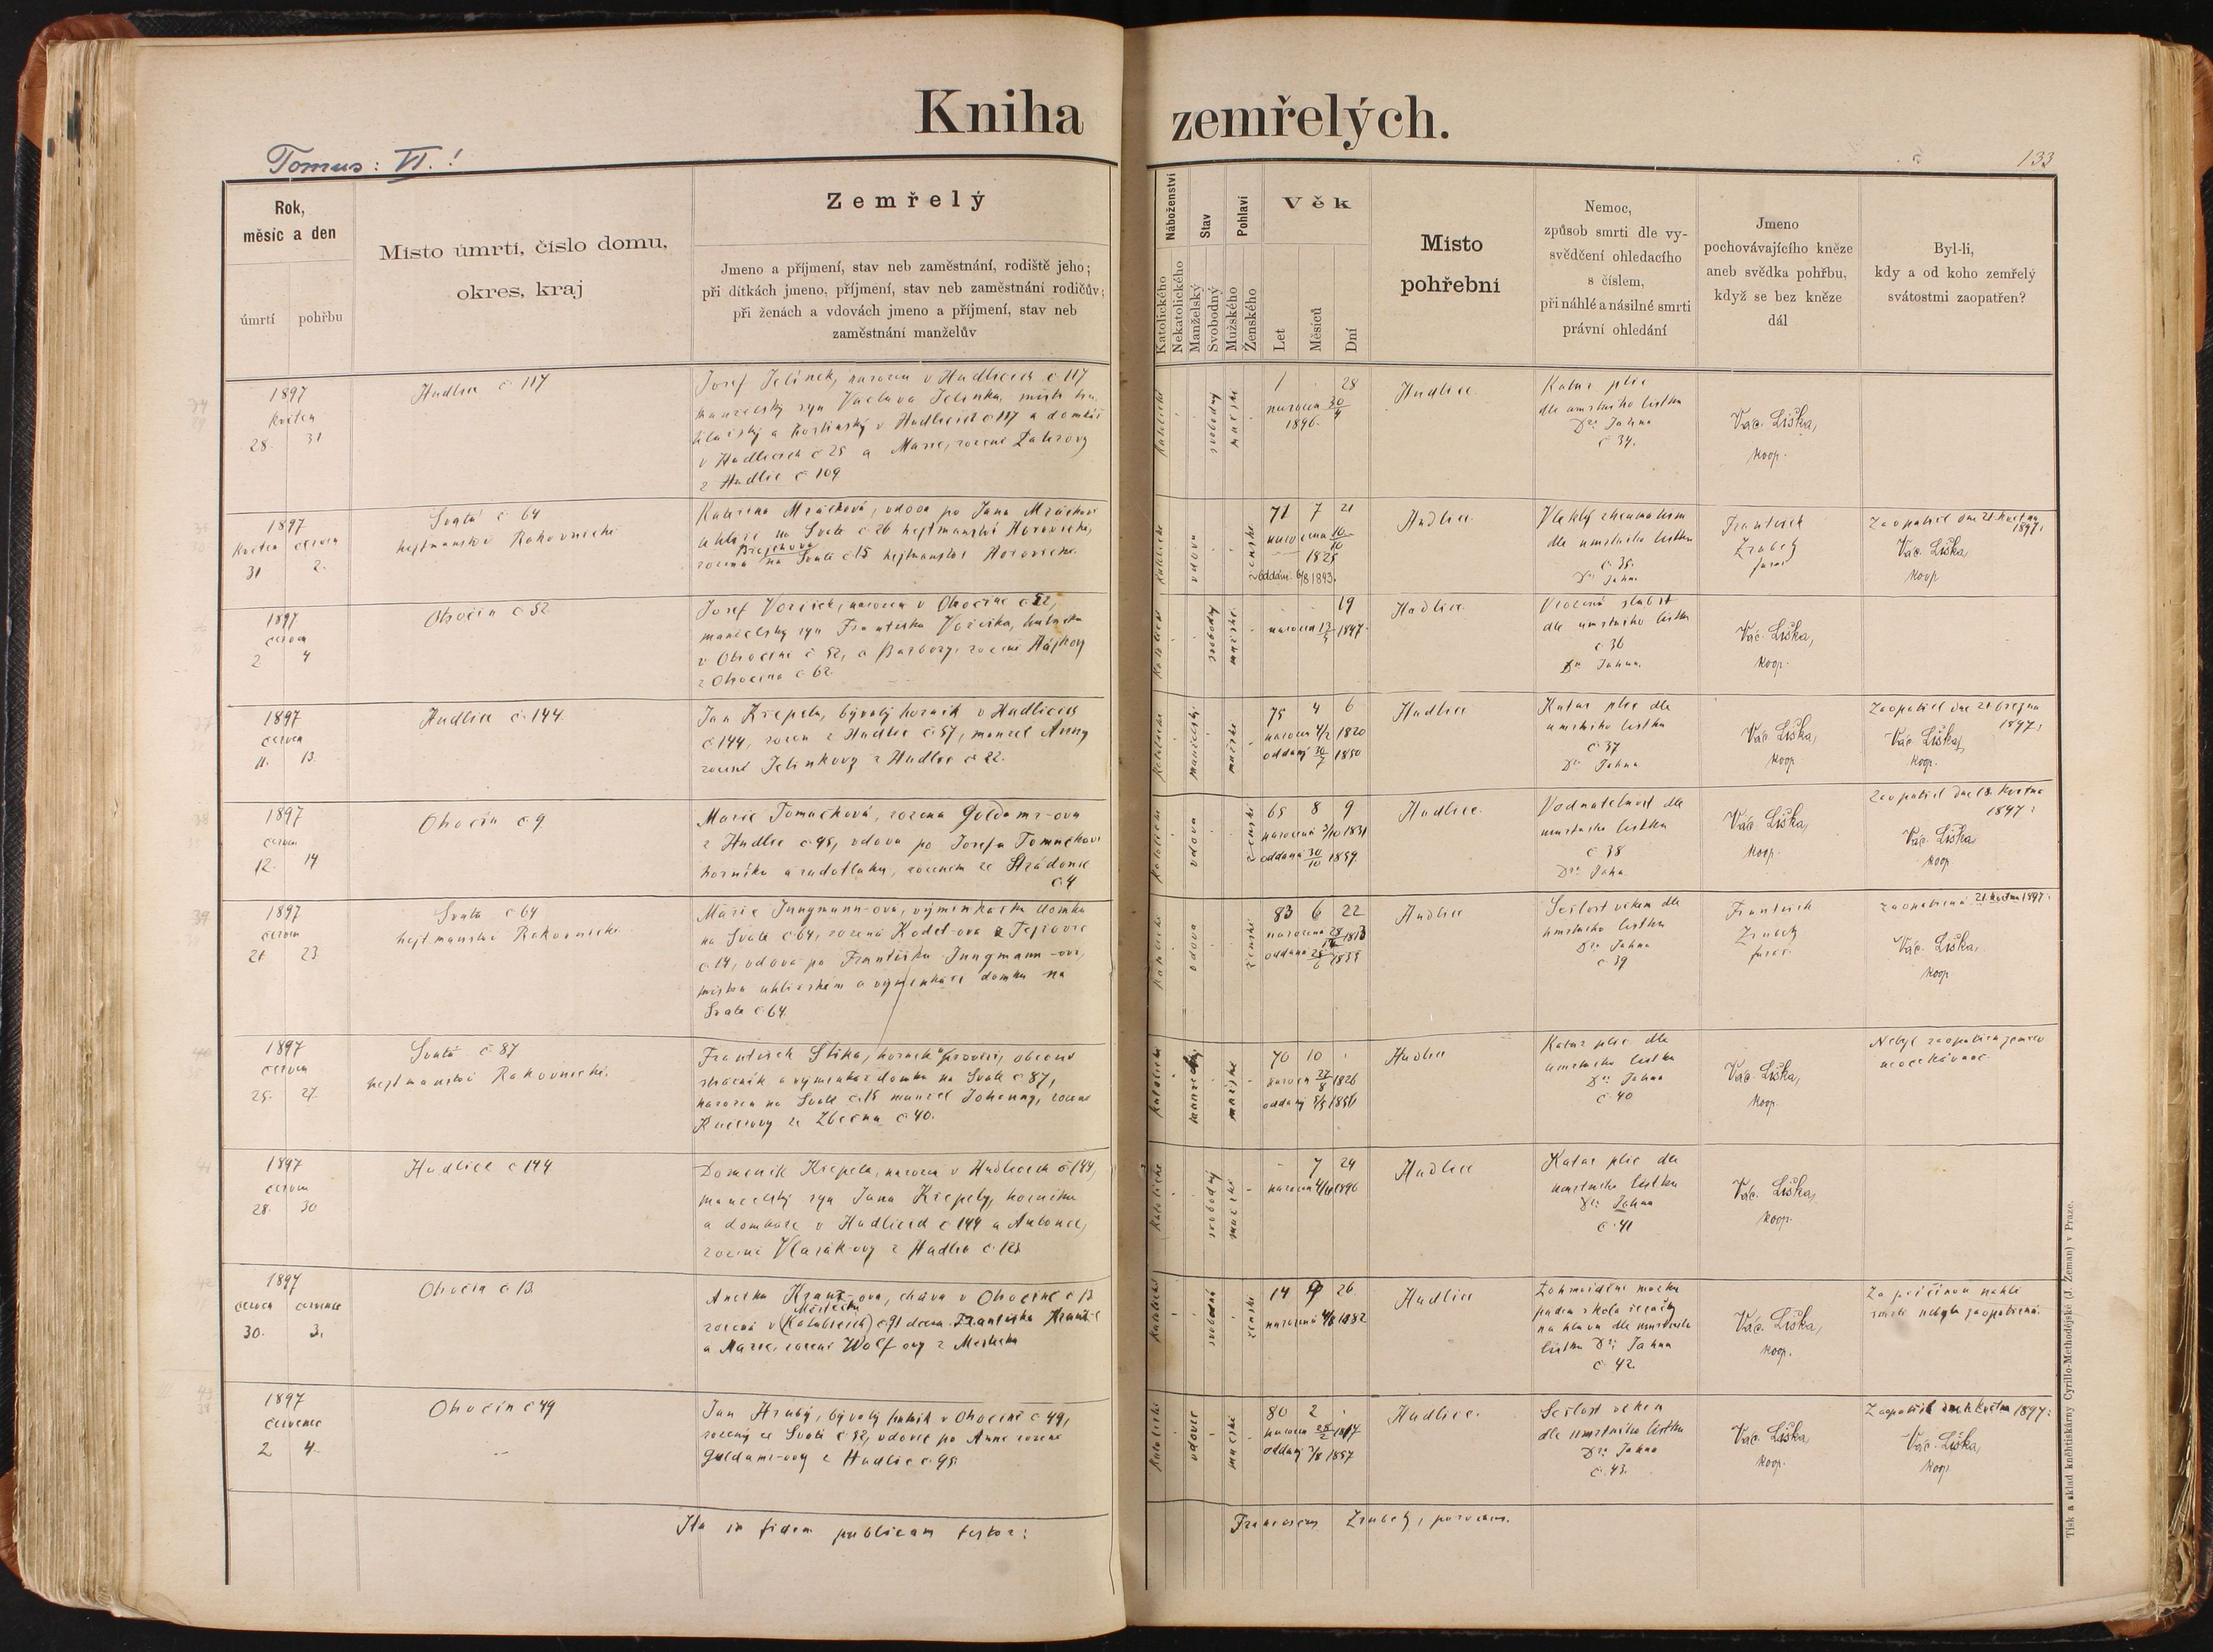 Kniha zemřelých.
Tomus: VI.!
133
Rok,
měsíc a den
úmrtí pohřbu
Místo úmrtí, číslo domu,
okres, kraj
Zemřelý
Jmeno a příjmení, stav neb zaměstnání, rodiště jeho;
při dítkách jmeno, příjmení, stav neb zaměstnání rodičův;
při ženách a vdovách jmeno a příjmení, stav neb
zaměstnání manželův
Náboženství
Katolického
Nekatolického
Stav
Manželský
Svobodný
Pohlaví
Mužského
Ženského
Věk
Let
Měsíců
Dní
Místo
pohřební
Nemoc,
způsob smrti dle vy-
svědčení ohledacího
s číslem,
při náhlé a násilné smrti
právní ohledání
Jmeno
pochovávajícího kněze
aneb svědka pohřbu,
když se bez kněze
dál
Byl-li,
kdy a od koho zemřelý
svátostmi zaopatřen?
1897
květen
28. 31
Hudlice č 117
Josef Jelínek, narozen v Hudlicích č 117
manželský syn Václava Jelínka,
v Hudlicích č 117 a domkář
v Hudlicích č 25 a Marie, rozené
z Hudlic č 109
katolické
svobodný
mužské
1 . 28
narozen 30/4
1896.
Hudlice.
Katar plic
dle úmrtního lístku
Dra Jahna
č 34.
Vác. Liška,
koop.
1897
květen červen
31 2.
Svatá č 64
hejtmanství Rakovnické
Kateřina Mráčková, vdova po Janu Mráčkovi
na Svaté č 26 hejtmanství Hořovické,
Brejchova
rozená na Svaté č 15 hejtmanství Hořovické.
katolické
vdova
ženské
71 7 21
narozena 10/10
1825
oddán. 6/8 1843.
Hudlice.
Vleklý rheumatism
dle úmrtního lístku
č 35.
Dra Jahna
František
Zrubek
farář
Zaopatřil dne 21. května
1897.
Vác. Liška
koop
1897
červen
2 4
Otročin č 52.
Josef Voříšek, narozen v Otročině č 52,
manželský syn Františka Voříška,
v Otročině č 52, a Barbory, rozené Hájkovy
z Otročina č 62.
katolické
svobodný
mužské.
19
narozen 13/5 1897.
Hudlice.
Vrozená slabost
dle úmrtního lístku
č 36
Dra Jahna.
Vác. Liška,
koop.
1897
červen
11. 13.
Hudlice č. 144.
Jan Křepela, bývalý horník v Hudlicích
č 144, rozen z Hudlic č 57, manžel Anny
rozené Jelínkovy z Hudlic č 22.
katolické
manželský.
mužské
75 4 6
narozen 4/2 1820
oddaný 30/7 1850
Hudlice
Katar plic dle
úmrtního lístku
č 37
Dra Jahna
Vác. Liška,
koop
Zaopatřil dne 21 března
1897,
Vác. Liška,
koop.
1897
červen
12. 14
Otročin č 9
Marie Tomáčková, rozená Goldamr-ova
z Hudlic č 95, vdova po Josefu Tomáčkovi
horníku a rudotlaku, rozeném ze Hrádonic
č 4
katolické
vdova
ženské
65 8 9
narozená 3/10 1831
oddaná 30/10 1859.
Hudlice.
Vodnatelnost dle
úmrtního lístku
č 38
Dra Jahna
Vác. Liška,
koop.
Zaopatřil dne 18. května
1897.
Vác. Liška
koop.
1897
červen
21 23
Svatá č 64
hejtmanství Rakovnické
Marie Jungmann-ova, výminkářka domku
na Svaté č 64, rozená Kodet-ova z
č 14, vdova po Františku Jungmann-ovi,
mistru uhlířském a výminkáři domku na
Svaté č 64.
katolické
vdova
ženské
83 6 22
narozená 28/11 1813
oddána 25/6 1835
Hudlice
Sešlost věkem dle
úmrtního lístku
Dra Jahna
č 39
František
Zrubek
farář.
zaopatřená 21. května 1897.
Vác. Liška,
koop
1897
červen
25. 27.
Svatá č 87
hejtmanství Rakovnické.
František Slíka, horník, obecní
strážník a výminkář domku na Svaté č 87,
narozen na Svaté č. 15 manžel Johanny, rozené
ze Zbečna č 40.
katolické
manželský
mužské
70 10 .
narozen 27/8 1826
oddaný 5/5 1856
Hudlice
Katar plic dle
úmrtního lístku
Dra Jahna
č. 40
Vác. Liška,
koop.
Nebyl zaopatřen zemřev
neočekávaně.
1897
červen
28. 30
Hudlice č 144
Dominik Křepela, narozen v Hudlicích č 144,
manželský syn Jana Křepely, horníka
a domkáře v Hudlicích č 144 a Antonie,
rozené Vlasák-ovy z Hudlic č 123
katolické
svobodný
mužské
7 24
narozen 4/11 1896
Hudlice
Katar plic dle
úmrtního lístku
Dra Jahna
č. 41
Vác. Liška,
koop.
1897
červen července
30. 3.
Otročin č 13.
Anežka Kranz-ova, chůva v Otročině č 13
Městečku
rozená v (Kalubicích) č 91 dcera Františka Kranze
a Marie, rozené Wolf-ovy z Městečka
katolické
svobodná
ženské
14 9 26
narozená 4/9 1882
Hudlice
pádem
na hlavu dle úmrtního
lístku Dra Jahna
č. 42.
Vác. Liška,
koop.
Za příčinou náhlé
smrti nebyla zaopatřená.
1897
červenec
2 4.
Otročin č 49
Jan Hrubý, bývalý hutník v Otročině č 49,
rozený ze Svaté č 52, vdovec po Anně rozené
Goldamr-ovy z Hudlic č 95.
katolické
vdovec
mužské
80 2 .
narozen 28/2 1817
oddaný 3/8 1857
Hudlice.
Sešlost věkem
dle úmrtního lístku
Dra Jahna
č. 43.
Vác. Liška
koop.
Zaopatřil dne května 1897.
Vác. Liška,
koop
Ita in fidem publicam testor: Franciscus Zrubek, parochus.
Tisk a sklad kněhtiskárny Cyrillo-Methodějské (J. Zeman) v Praze.